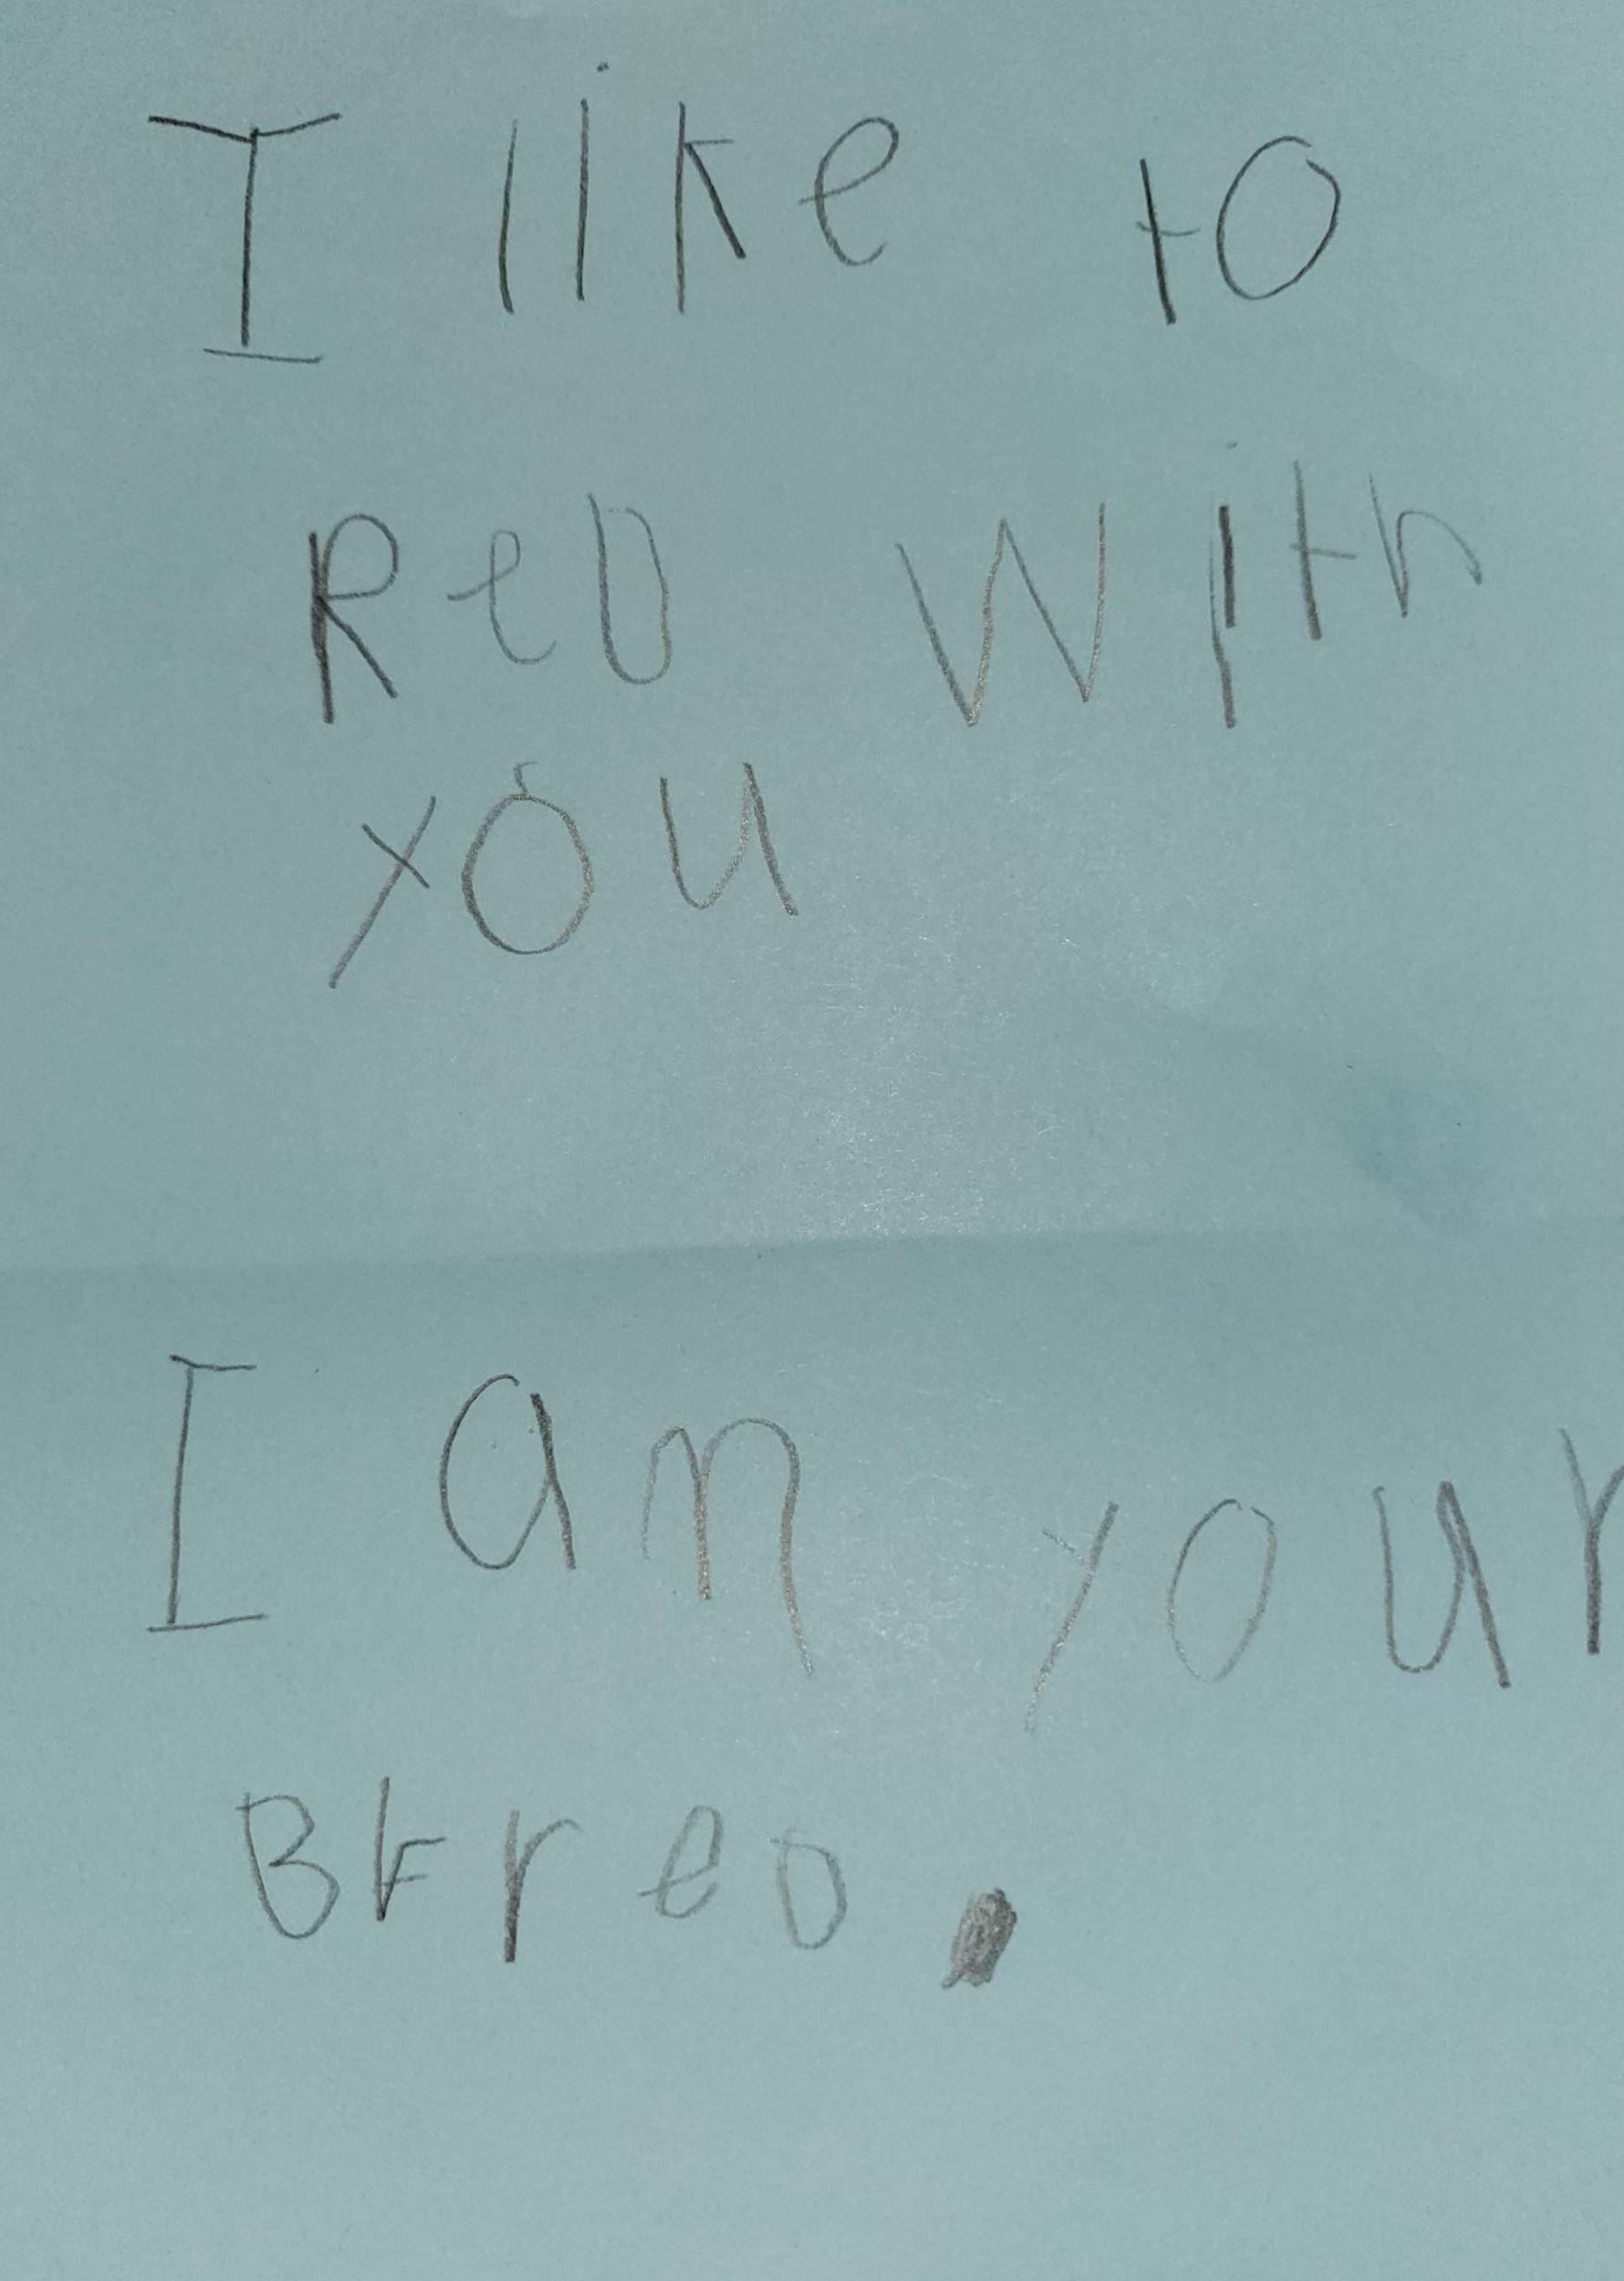 I like to
ReD with
you
I am your
BFreD.